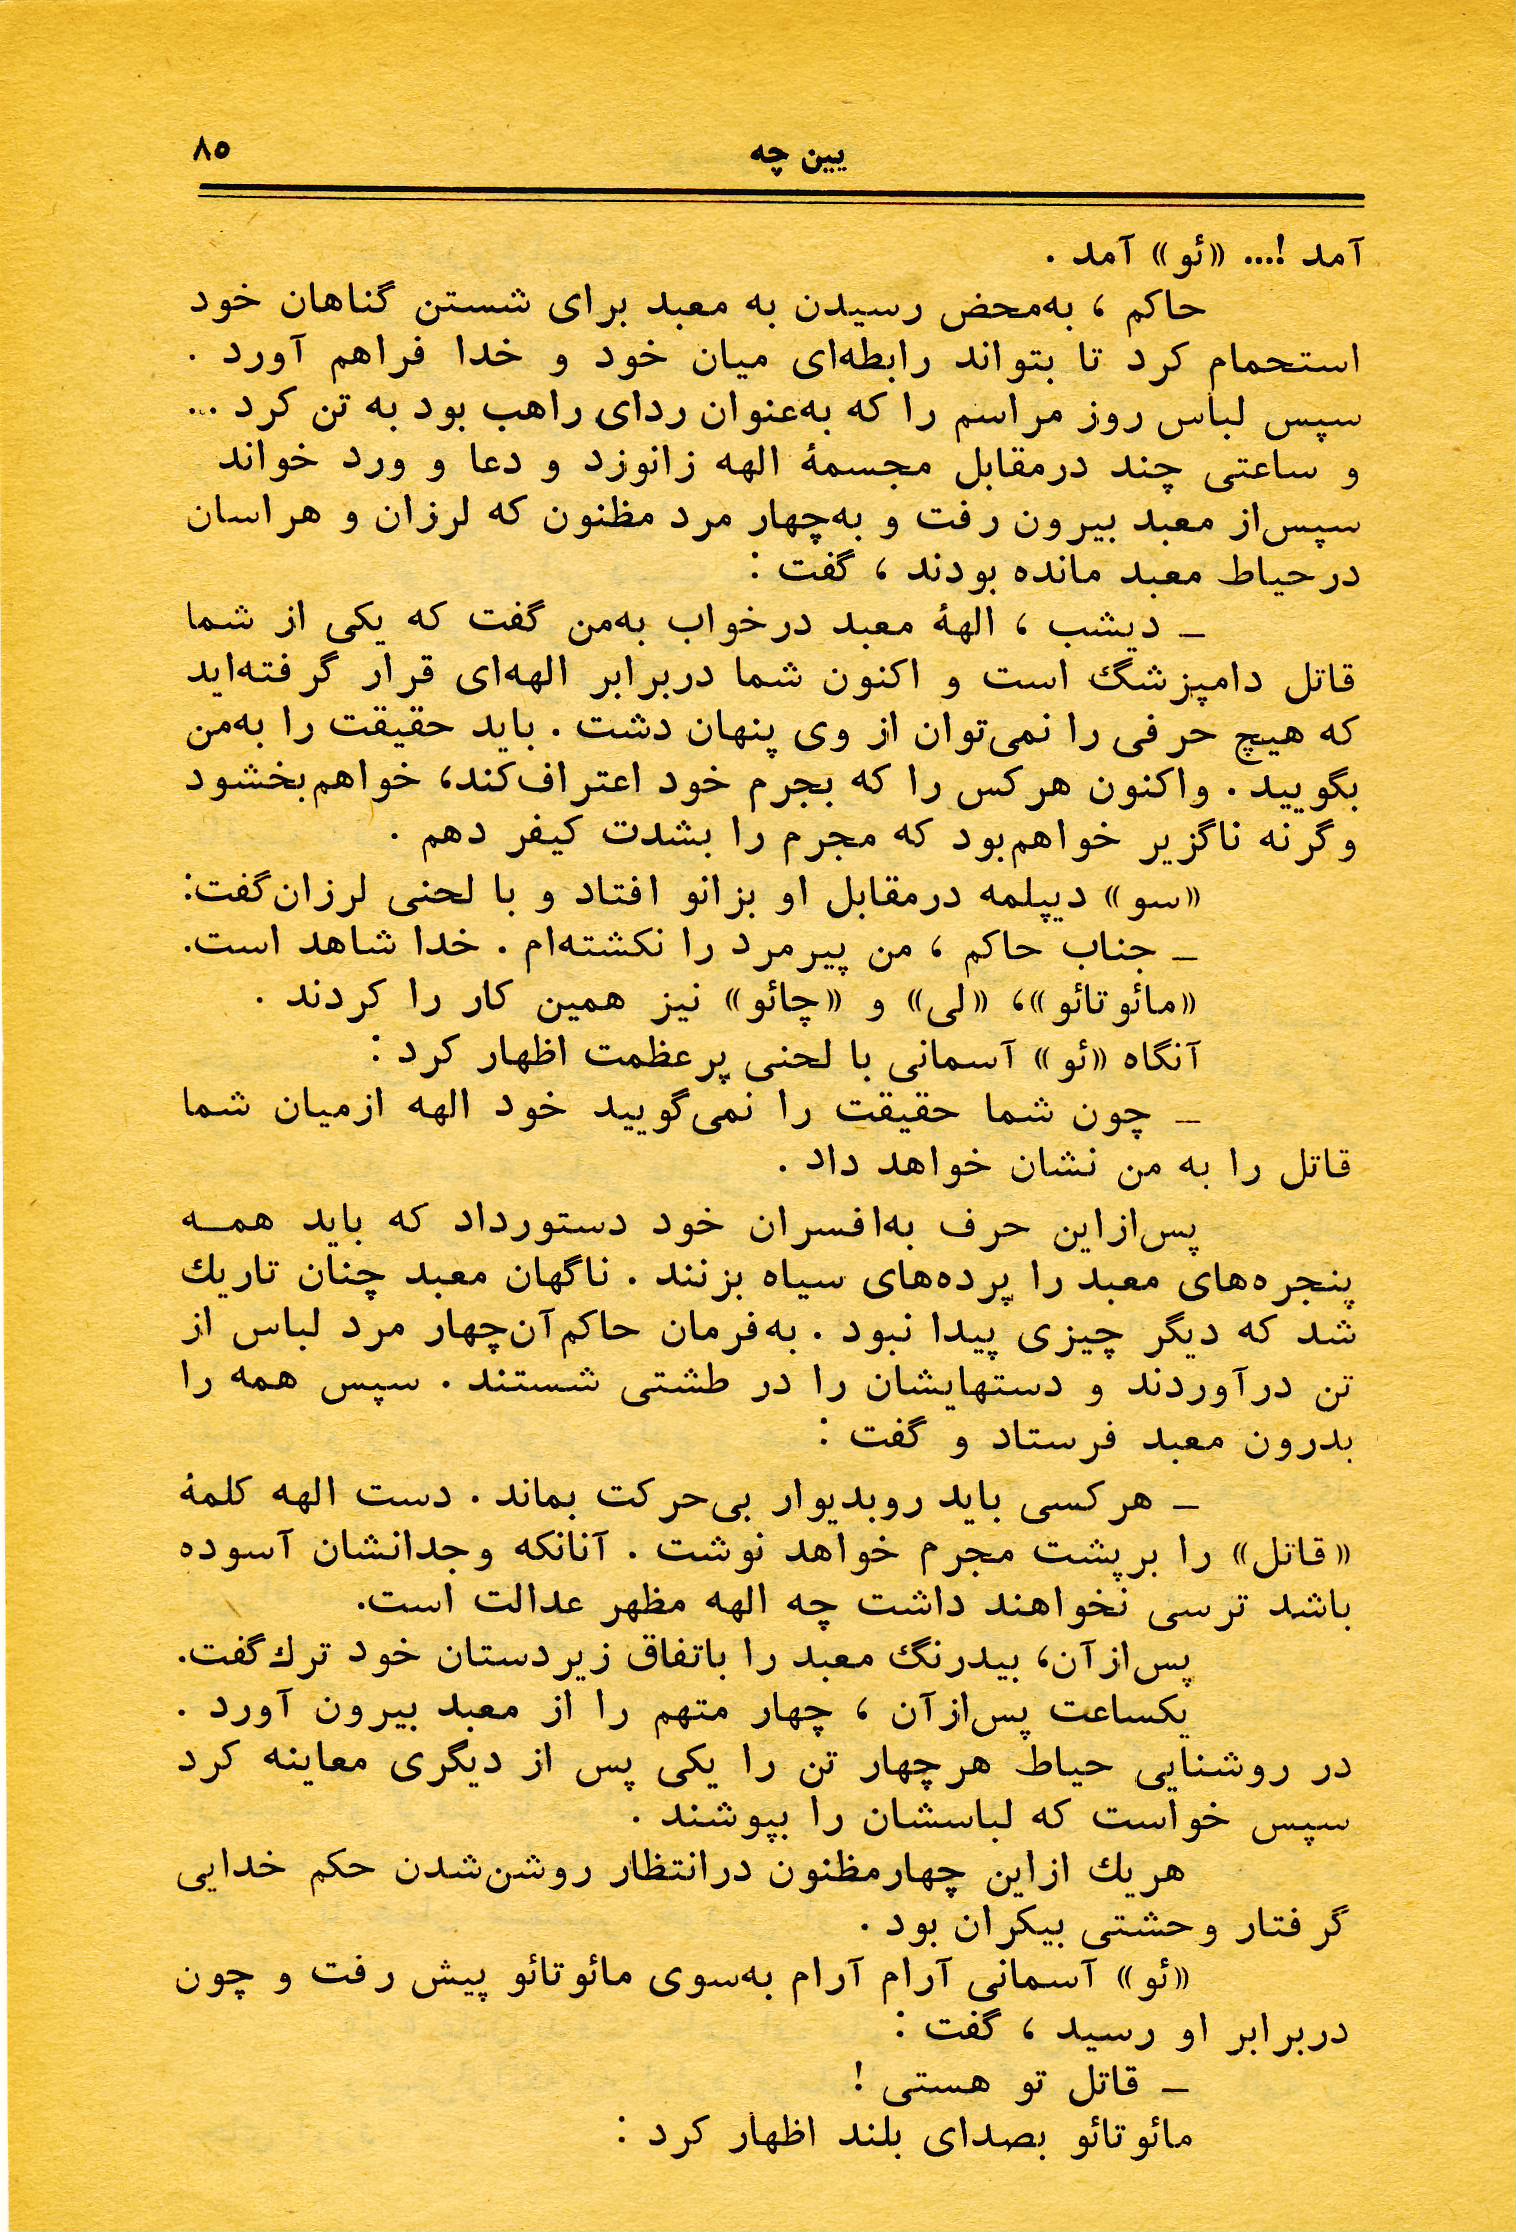 یین چه
۸۵
آمد !... «ئو» آمد .
حاکم ، به‌محض رسیدن به معبد برای شستن گناهان خود
استحمام کرد تا بتواند رابطه‌ای میان خود و خدا فراهم آورد .
سپس لباس روز مراسم را که به‌عنوان ردای راهب بود به تن کرد ...
و ساعتی چند درمقابل مجسمهٔ الهه زانوزد و دعا و ورد خواند
سپس‌از معبد بیرون رفت و به‌چهار مرد مظنون که لرزان و هراسان
درحیاط معبد مانده بودند ، گفت :
ـ دیشب ، الههٔ معبد درخواب به‌من گفت که یکی از شما
قاتل دامپزشگ است و اکنون شما دربرابر الهه‌ای قرار گرفته‌اید
که هیچ حرفی را نمی‌توان از وی پنهان دشت . باید حقیقت را به‌من
بگویید . واکنون هرکس را که بجرم خود اعتراف‌کند، خواهم‌بخشود
وگرنه ناگزیر خواهم‌بود که مجرم را بشدت کیفر دهم .
«سو» دیپلمه درمقابل او بزانو افتاد و با لحنی لرزان‌گفت:
ـ جناب حاکم ، من پیرمرد را نکشته‌ام . خدا شاهد است.
«مائوتائو»، «لی» و «چائو» نیز همین کار را کردند .
آنگاه «ئو» آسمانی با لحنی پرعظمت اظهار کرد :
ـ چون شما حقیقت را نمی‌گویید خود الهه ازمیان شما
قاتل را به من نشان خواهد داد .
پس‌ازاین حرف به‌افسران خود دستورداد که باید همـه
پنجره‌های معبد را پرده‌های سیاه بزنند . ناگهان معبد چنان تاریك
شد که دیگر چیزی پیدا نبود . به‌فرمان حاکم‌آن‌چهار مرد لباس از
تن درآوردند و دستهایشان را در طشتی شستند . سپس همه را
بدرون معبد فرستاد و گفت :
ـ هرکسی باید روبدیوار بی‌حرکت بماند . دست الهه کلمهٔ
«قاتل» را برپشت مجرم خواهد نوشت . آنانکه وجدانشان آسوده
باشد ترسی نخواهند داشت چه الهه مظهر عدالت است.
پس‌ازآن، بیدرنگ معبد را باتفاق زیردستان خود ترك‌گفت.
یکساعت پس‌ازآن ، چهار متهم را از معبد بیرون آورد .
در روشنایی حیاط هرچهار تن را یکی پس از دیگری معاینه کرد
سپس خواست که لباسشان را بپوشند .
هریك ازاین چهارمظنون درانتظار روشن‌شدن حکم خدایی
گرفتار وحشتی بیکران بود .
«ئو» آسمانی آرام آرام به‌سوی مائوتائو پیش رفت و چون
دربرابر او رسید ، گفت :
ـ قاتل تو هستی !
مائوتائو بصدای بلند اظهار کرد :